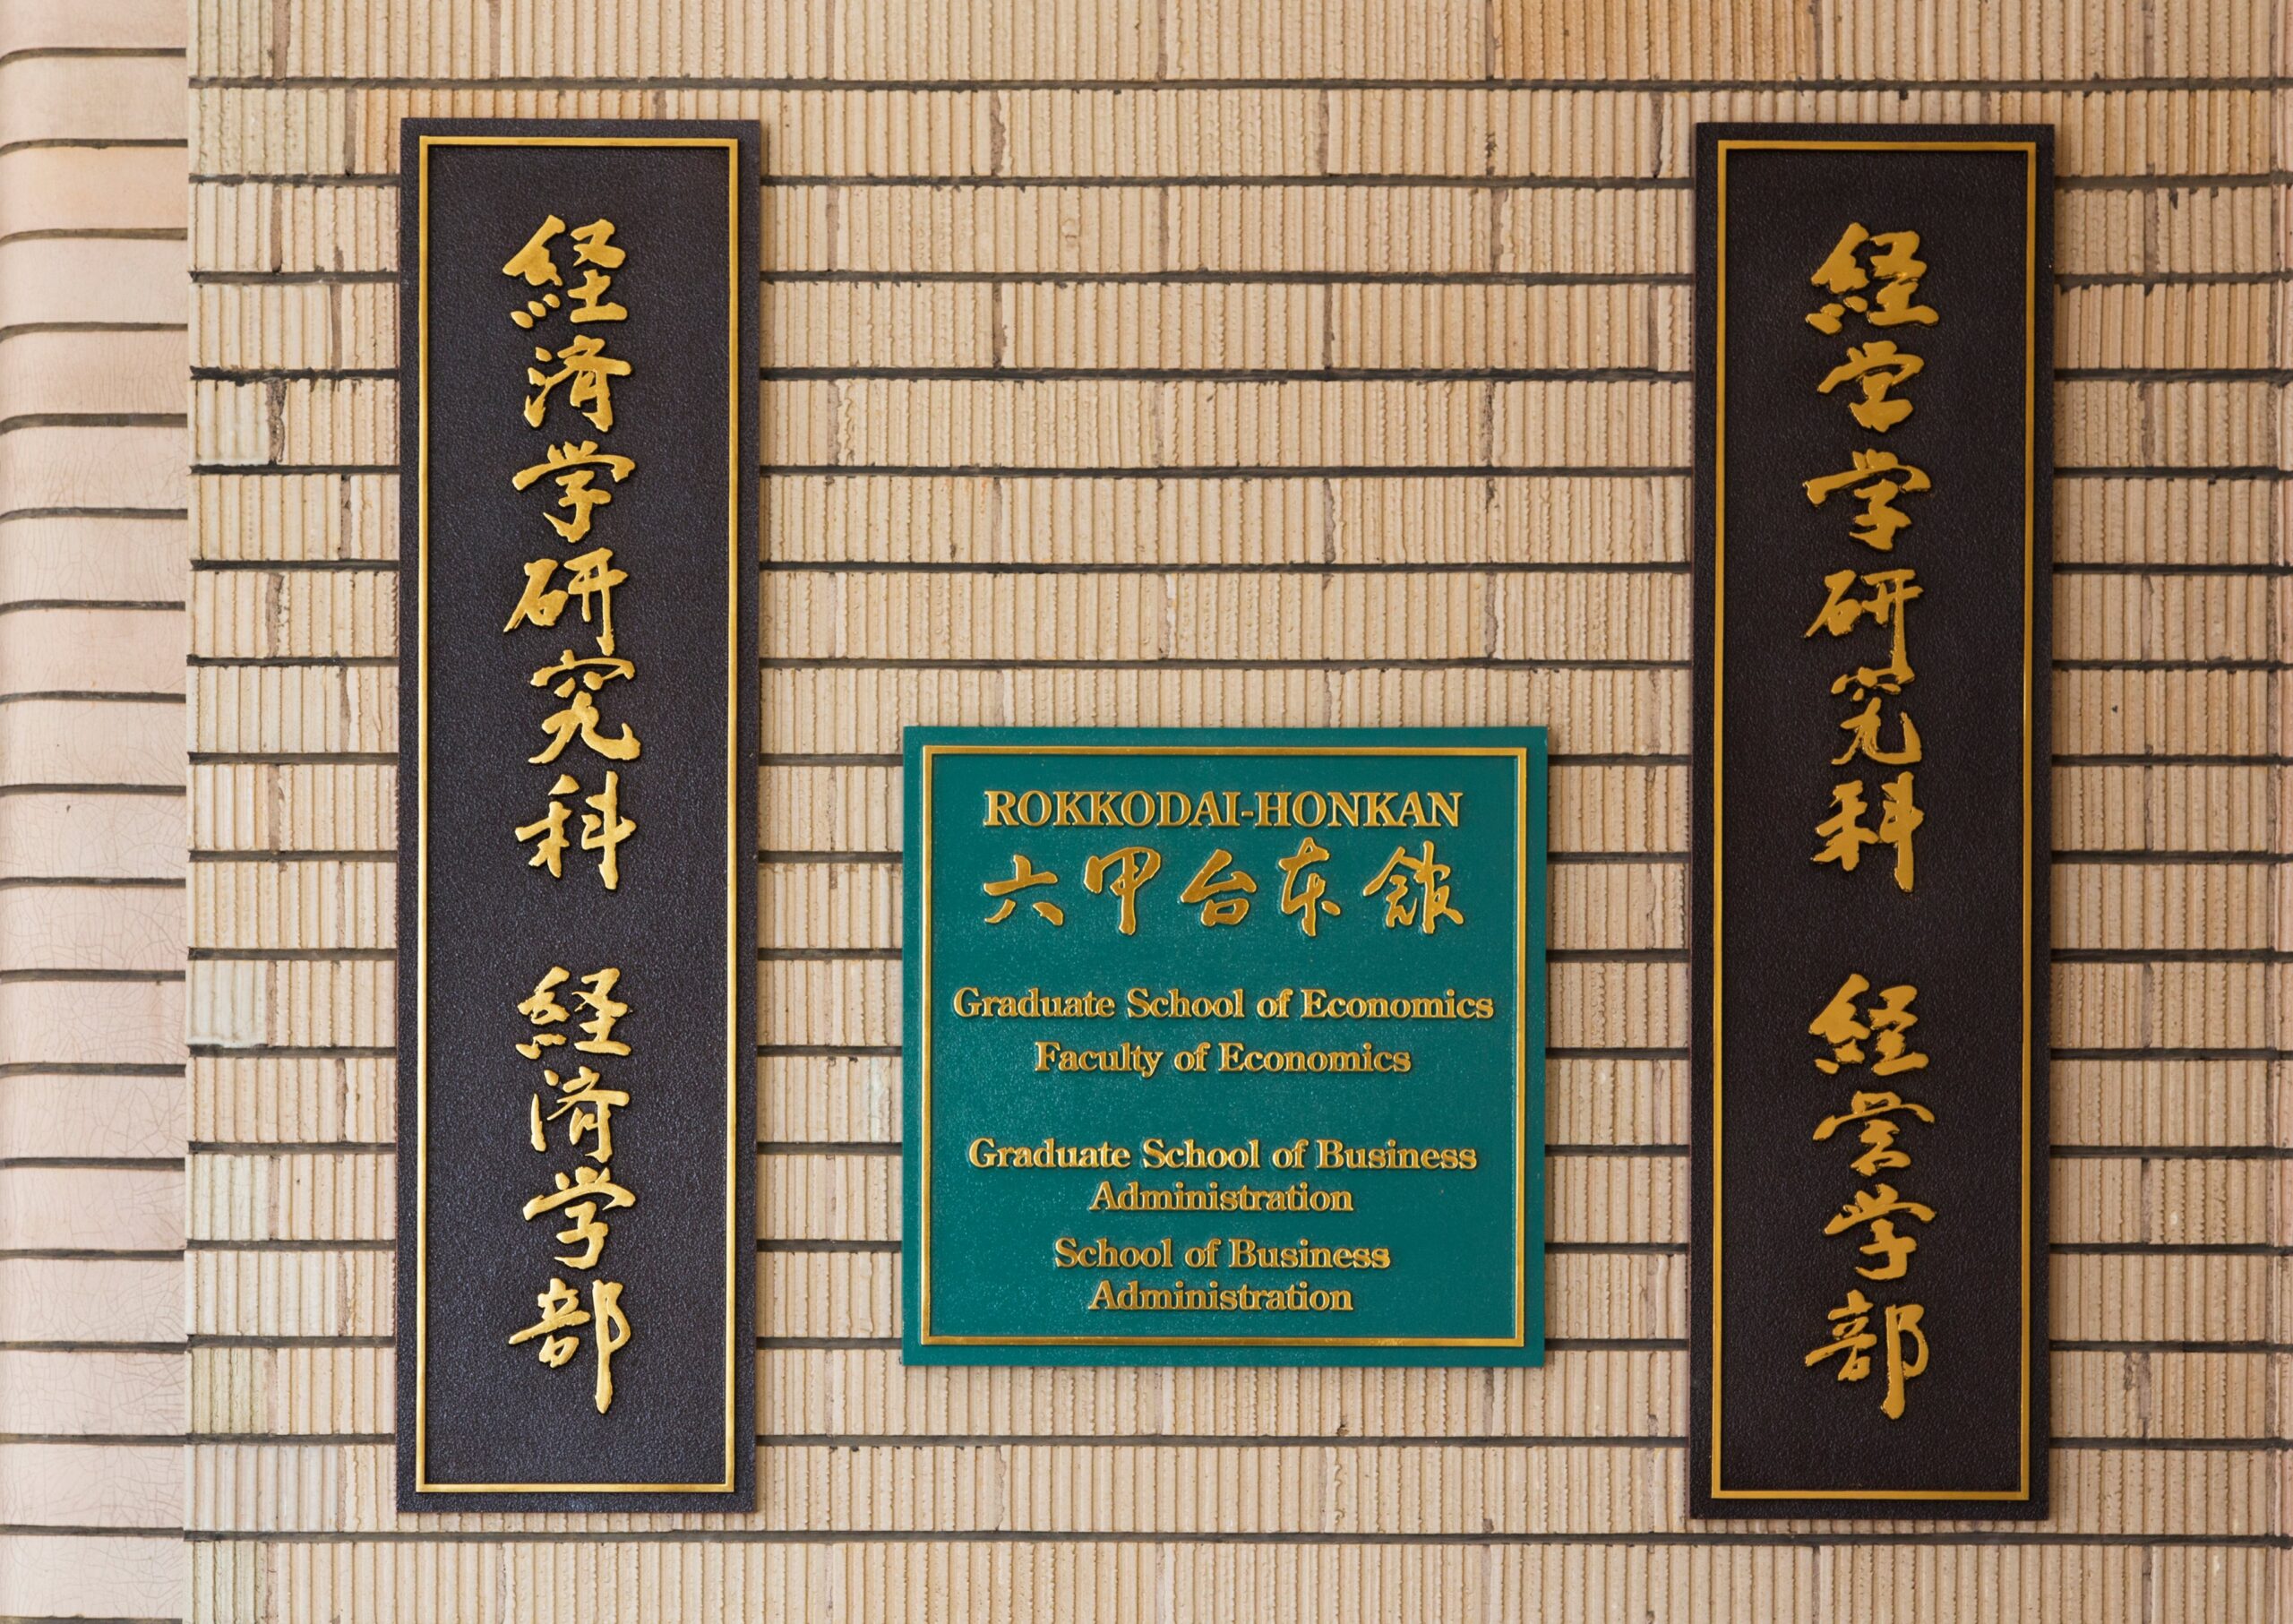 経済学研究科 経済学部
ROKKODAI-HONKAN
六甲台本館
Graduate School of Economics
Faculty of Economics
Graduate School of Business
Administration
School of Business
Administration
経営学研究科 経営学部